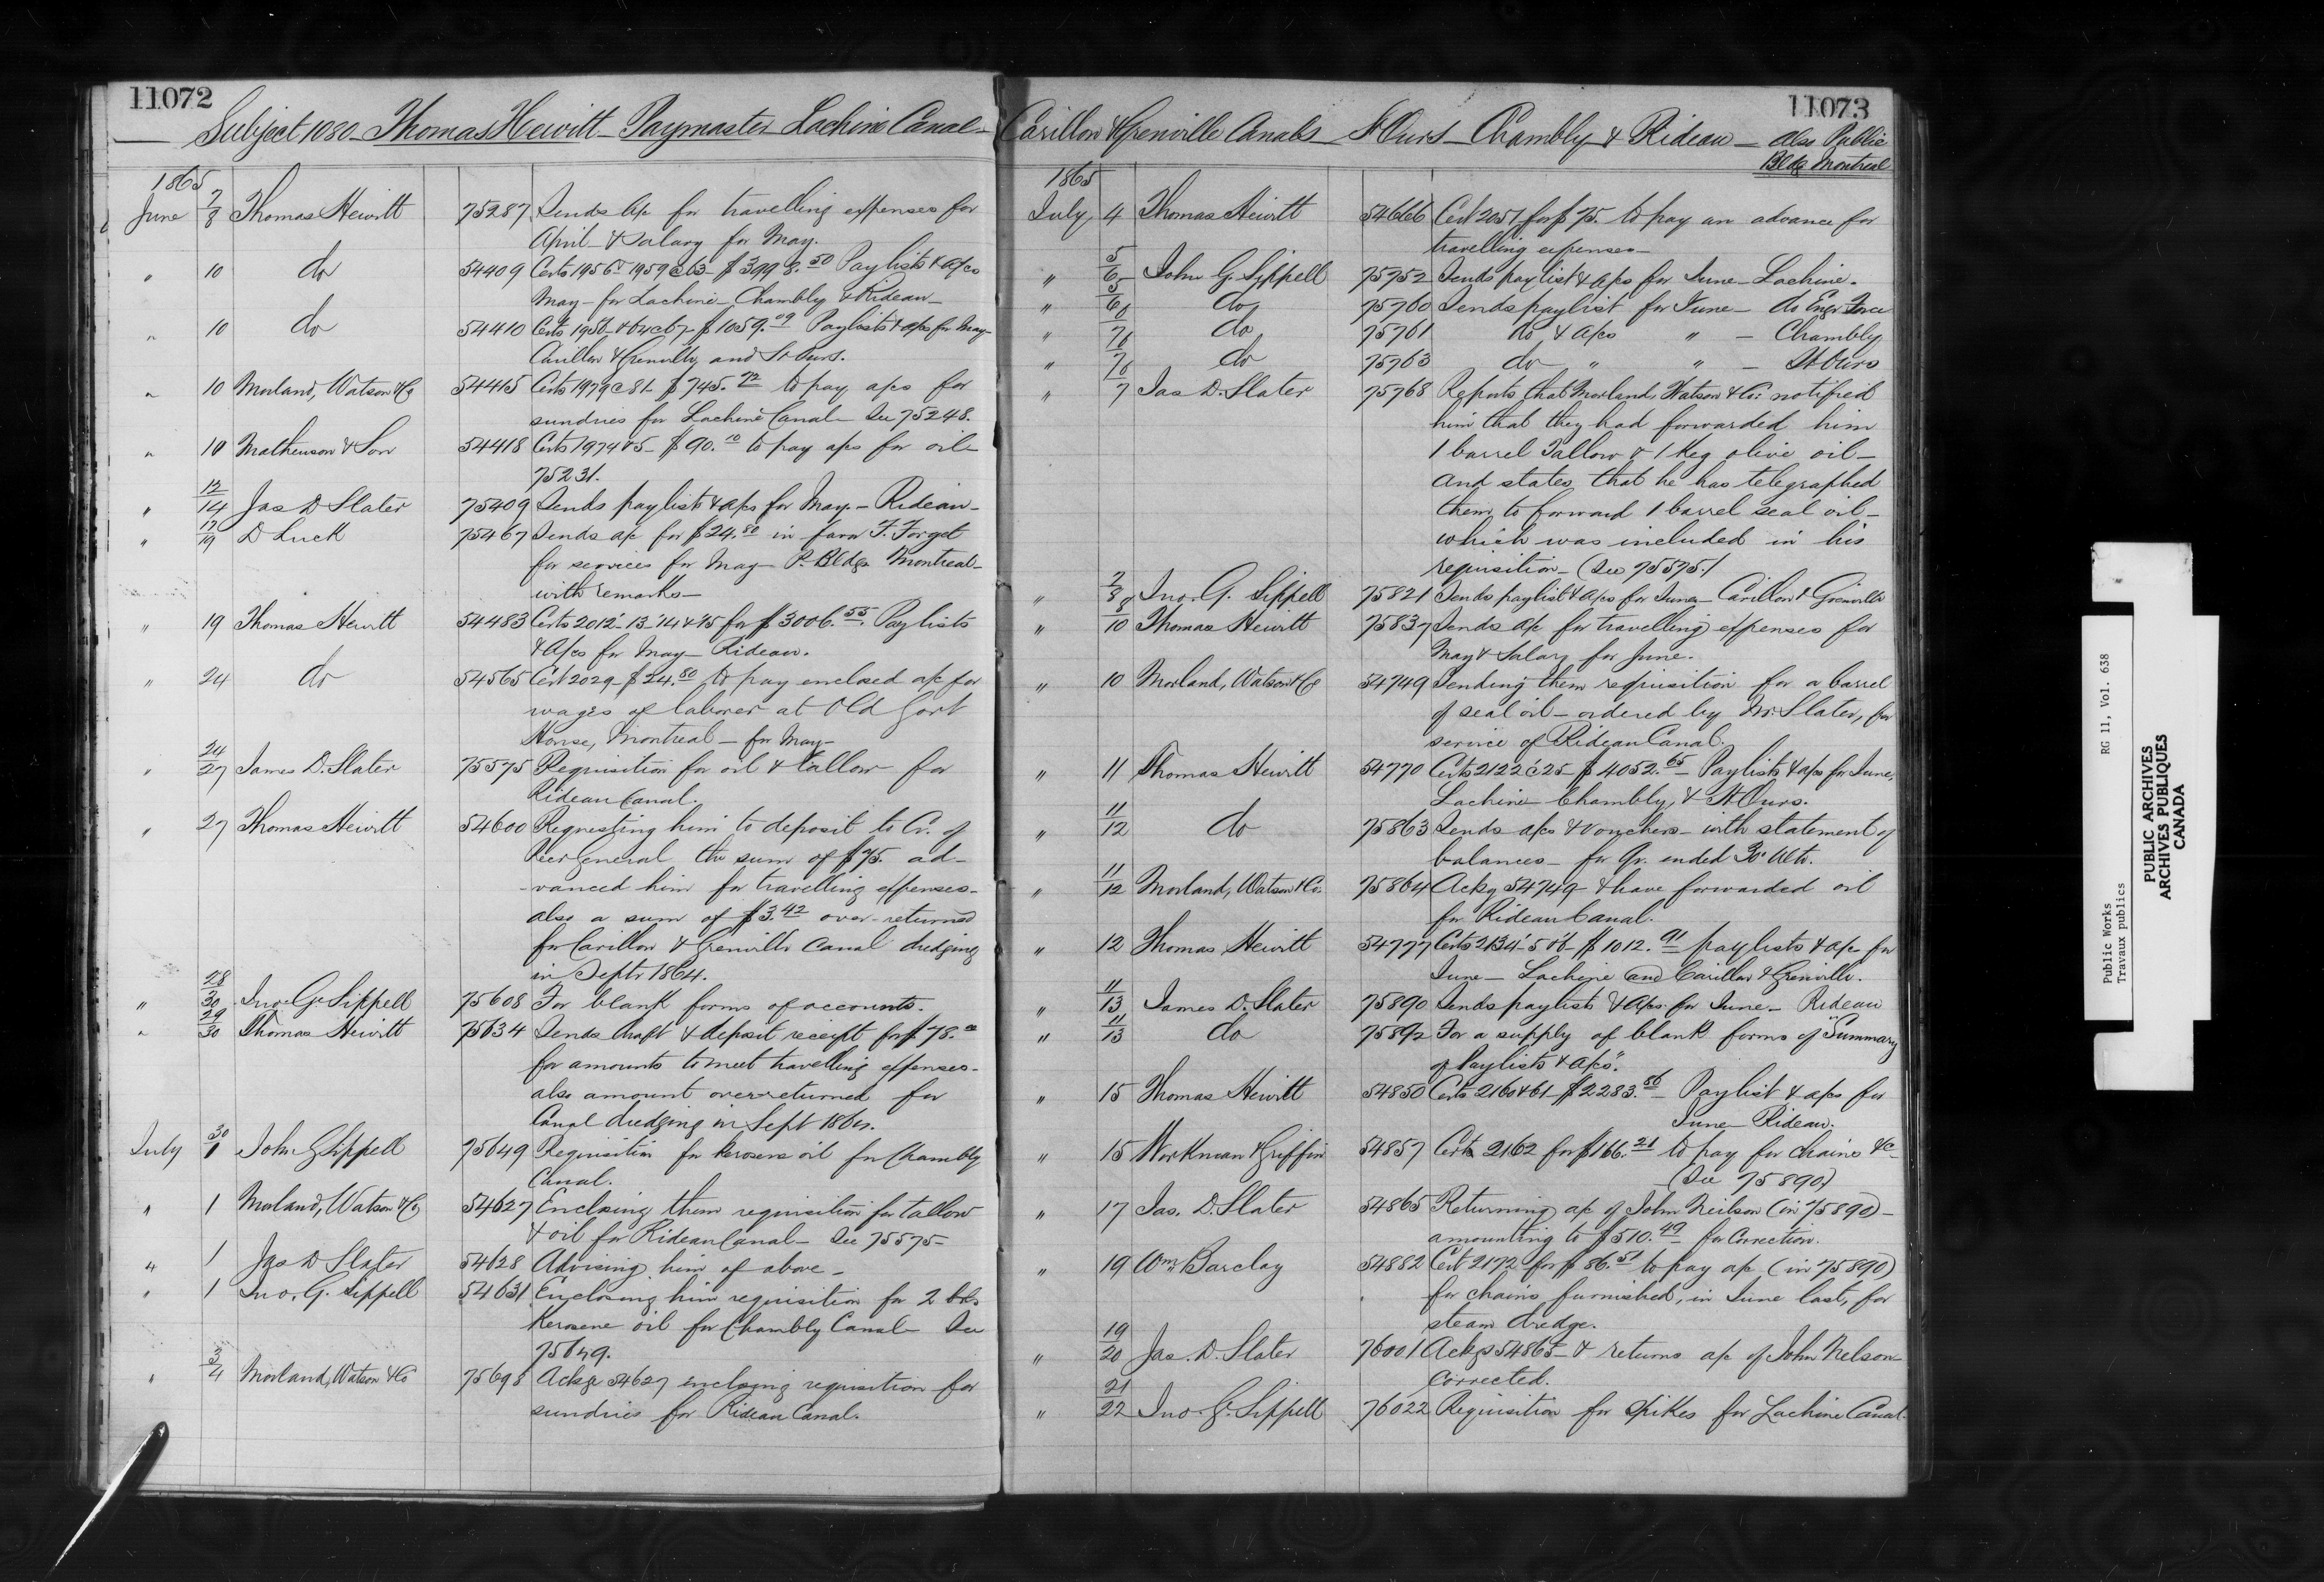 11072
Subject 1080 - Thomas Hewitt - Paymaster Lachine Canal -
1865
June 7/8 Thomas Hewitt 75287 Sends a/c for travelling expenses for
April & Salary for May.
" 10 do 54409 Certs 1956 1959 @ 63 - $3998.50 Paylists & a/cs
May - for Lachine - Chambly & Rideau -
" 10 do 54410 Certs $1059.09 Paylists & a/cs for May -
Carillon & Grenville, and St Ours.
" 10 Morland, Watson & Co 54415 Certs 1979 @ 81 - $745.72 to pay a/cs for
sundries for Lachine Canal - See 75248.
" 10 Mathewson & Son 54418 Certs 1974 & 5 - $90.10 to pay a/cs for oil -
75231.
" 12/14 Jas D Slater 75409 Sends paylists & a/cs for May. - Rideau -
" 17/19 D Luck 75467 Sends a/c for $24.80 in favor F. Forget
for services for May - P. Bldgs Montreal -
with remarks -
" 19 Thomas Hewitt 54483 Certs 2012 - 13 '14 & '15 for $3006.55. Paylists
& A/cs for May - Rideau.
" 24 do 54565 Cert 2029 - $24.80 to pay enclosed a/c for
wages of laborer at Old Govt
House, Montreal - for May -
" 24/27 James D. Slater 75575 Requisition for oil & tallow for
Rideau Canal.
" 27 Thomas Hewitt 54600 Requesting him to deposit to Cr. of
Recr General the sum of $75. ad-
-vanced him for travelling expenses -
also a sum of $3.42 over-returned
for Carillon & Grenville Canal dredging
in Septr 1864.
" 28/30 Jno. G. Sippell 75608 For blank forms of accounts.
" 29/30 Thomas Hewitt 75634 Sends draft & deposit receipt for $78.
for amounts to meet travelling expenses -
also amount over-returned for
Canal dredging in Sept 1864.
July 30/1 John G Sippell 75649 Requisition for kerosene oil for Chambly
Canal.
" 1 Morland, Watson & Co 54627 Enclosing them requisition for tallow
& oil for Rideau Canal - See 75575 -
" 1 Jas D Slater 54628 Advising him of above -
" 1 Jno. G. Sippell 54631 Enclosing him requisition for 2 bbls
Kerosene oil for Chambly Canal - See
75649.
" 3/4 Morland, Watson & Co 75698 Ackge 54627 enclosing requisition for
sundries for Rideau Canal.
11073
Carillon & Grenville Canals - St Ours - Chambly & Rideau - also Public
Bldgs Montreal
1865
July 4 Thomas Hewitt 54666 Cert 2057 for $75. to pay an advance for
travelling expenses -
" 5/6 John G. Sippell 75752 Sends paylist & a/cs for June - Lachine.
" 5/6 do 75760 Sends paylist for June - do Engr Force
" 6/7 do 75761 do & a/cs " - Chambly
" 6/7 do 75763 do " " - St Ours
" 7 Jas D. Slater 75768 Reports that Morland, Watson & Co: notified
him that they had forwarded him
1 barrel Tallow & 1 Keg olive oil -
and states that he has telegraphed
them to forward 1 barrel seal oil -
which was included in his
requisition - (See 75575.)
" 7/8 Jno. G. Sippell 75821 Sends paylist & a/cs for June - Carillon & Grenville
" 8/10 Thomas Hewitt 75837 Sends a/c for travelling expenses for
May & Salary for June.
" 10 Morland, Watson & Co 54749 Sending them requisition for a barrel
of seal oil - ordered by Mr. Slater, for
service of Rideau Canal.
" 11 Thomas Hewitt 54770 Certs 2122 @ 25 - $4052.65 - Paylists & a/cs for June,
Lachine Chambly, & St Ours.
" 11/12 do 75863 Sends a/cs & vouchers - with statement of
balances - for Qr. ended 30' Ulto.
" 11/12 Morland, Watson & Co. 75864 Ackg 54749 & have forwarded oil
for Rideau Canal.
" 12 Thomas Hewitt 54777 Certs 2134 '5 & '6 - $1012.91 paylists & a/c for
June - Lachine and Carillon & Grenville.
" 11/13 James D. Slater 75890 Sends paylists & A/cs. for June - Rideau
" 11/13 do 75892 For a supply of blank forms of "Summary
of Paylists & A/cs".
" 15 Thomas Hewitt 54850 Certs 2160 & 61 - $2283.56 - Paylist & a/cs for
June - Rideau.
" 15 Workman & Griffin 54857 Cert 2162 for $166.21 to pay for chains &c -
(See 75890)
" 17 Jas. D. Slater 54865 Returning a/c of John Neilson (in 75890) -
amounting to $510.49 for correction.
" 19 Wm Barclay 54882 Cert 2172 for $86.51 to pay a/c (in 75890)
for chains furnished, in June last, for
steam dredge.
" 19/20 Jas. D. Slater 76001 Ackgs 54865 - & returns a/c of John Nelson
corrected.
" 21/22 Jno. G. Sippell 76022 Requisition for spikes for Lachine Canal.
Public Works
Travaux publics
RG 11, Vol. 638
PUBLIC ARCHIVES
ARCHIVES PUBLIQUES
CANADA